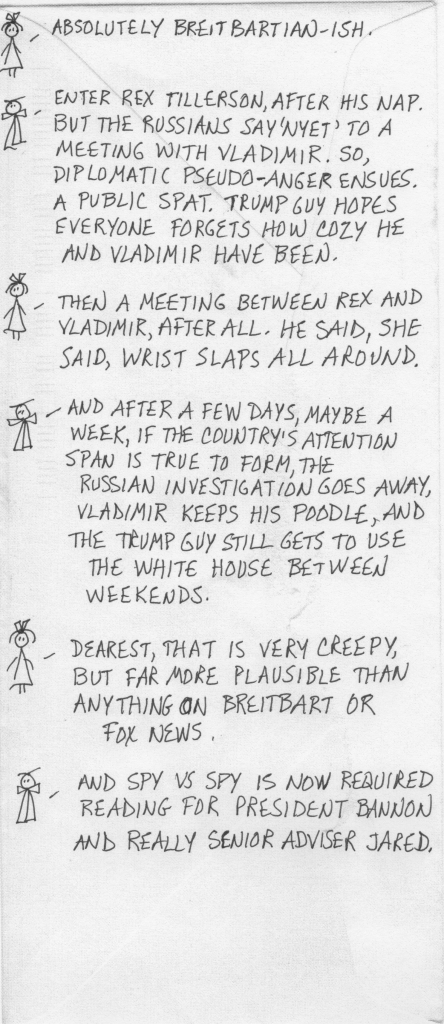 ABSOLUTELY BREITBARTIAN-ISH.
ENTER REX TILLERSON, AFTER HIS NAP.
BUT THE RUSSIANS SAY 'NYET' TO A
MEETING WITH VLADIMIR. SO,
DIPLOMATIC PSEUDO-ANGER ENSUES.
A PUBLIC SPAT. TRUMP GUY HOPES
EVERYONE FORGETS HOW COZY HE
AND VLADIMIR HAVE BEEN.
THEN A MEETING BETWEEN REX AND
VLADIMIR, AFTER ALL. HE SAID, SHE
SAID, WRIST SLAPS ALL AROUND.
AND AFTER A FEW DAYS, MAYBE A
WEEK, IF THE COUNTRY'S ATTENTION
SPAN IS TRUE TO FORM, THE
RUSSIAN INVESTIGATION GOES AWAY,
VLADIMIR KEEPS HIS POODLE, AND
THE TRUMP GUY STILL GETS TO USE
THE WHITE HOUSE BETWEEN
WEEKENDS.
DEAREST, THAT IS VERY CREEPY,
BUT FAR MORE PLAUSIBLE THAN
ANYTHING ON BREITBART OR
FOX NEWS.
AND SPY VS SPY IS NOW REQUIRED
READING FOR PRESIDENT BANNON
AND REALLY SENIOR ADVISER JARED.